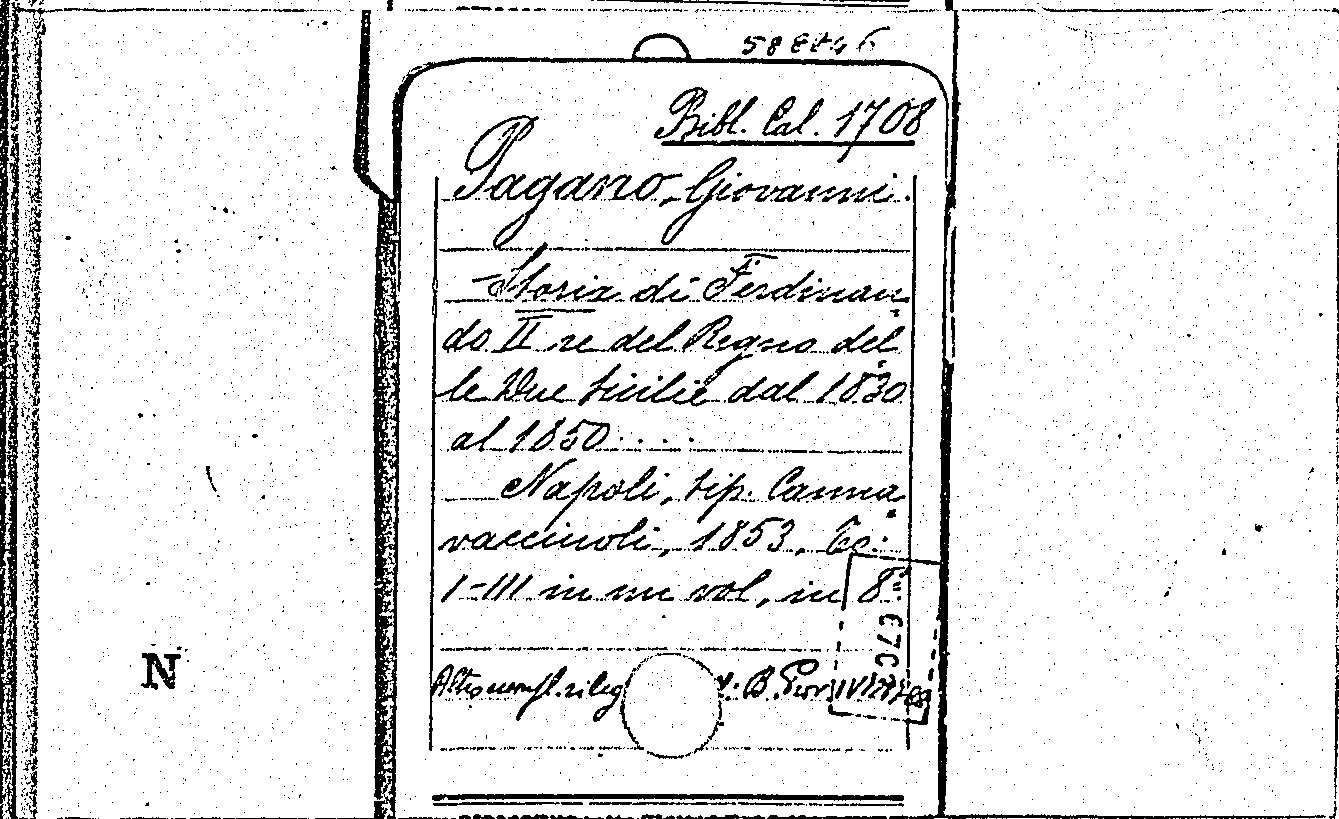 Bibl. Cal. 1708
Pagano, Giovanni.
Storia di Ferdinan
do II re del Regno del
le Due Sicilie dal 1830
al 1850....
Napoli, tip. Canna
vacciuoli, 1853. To:
I-III in un vol, in 8º.
Altro rileg
B.
N